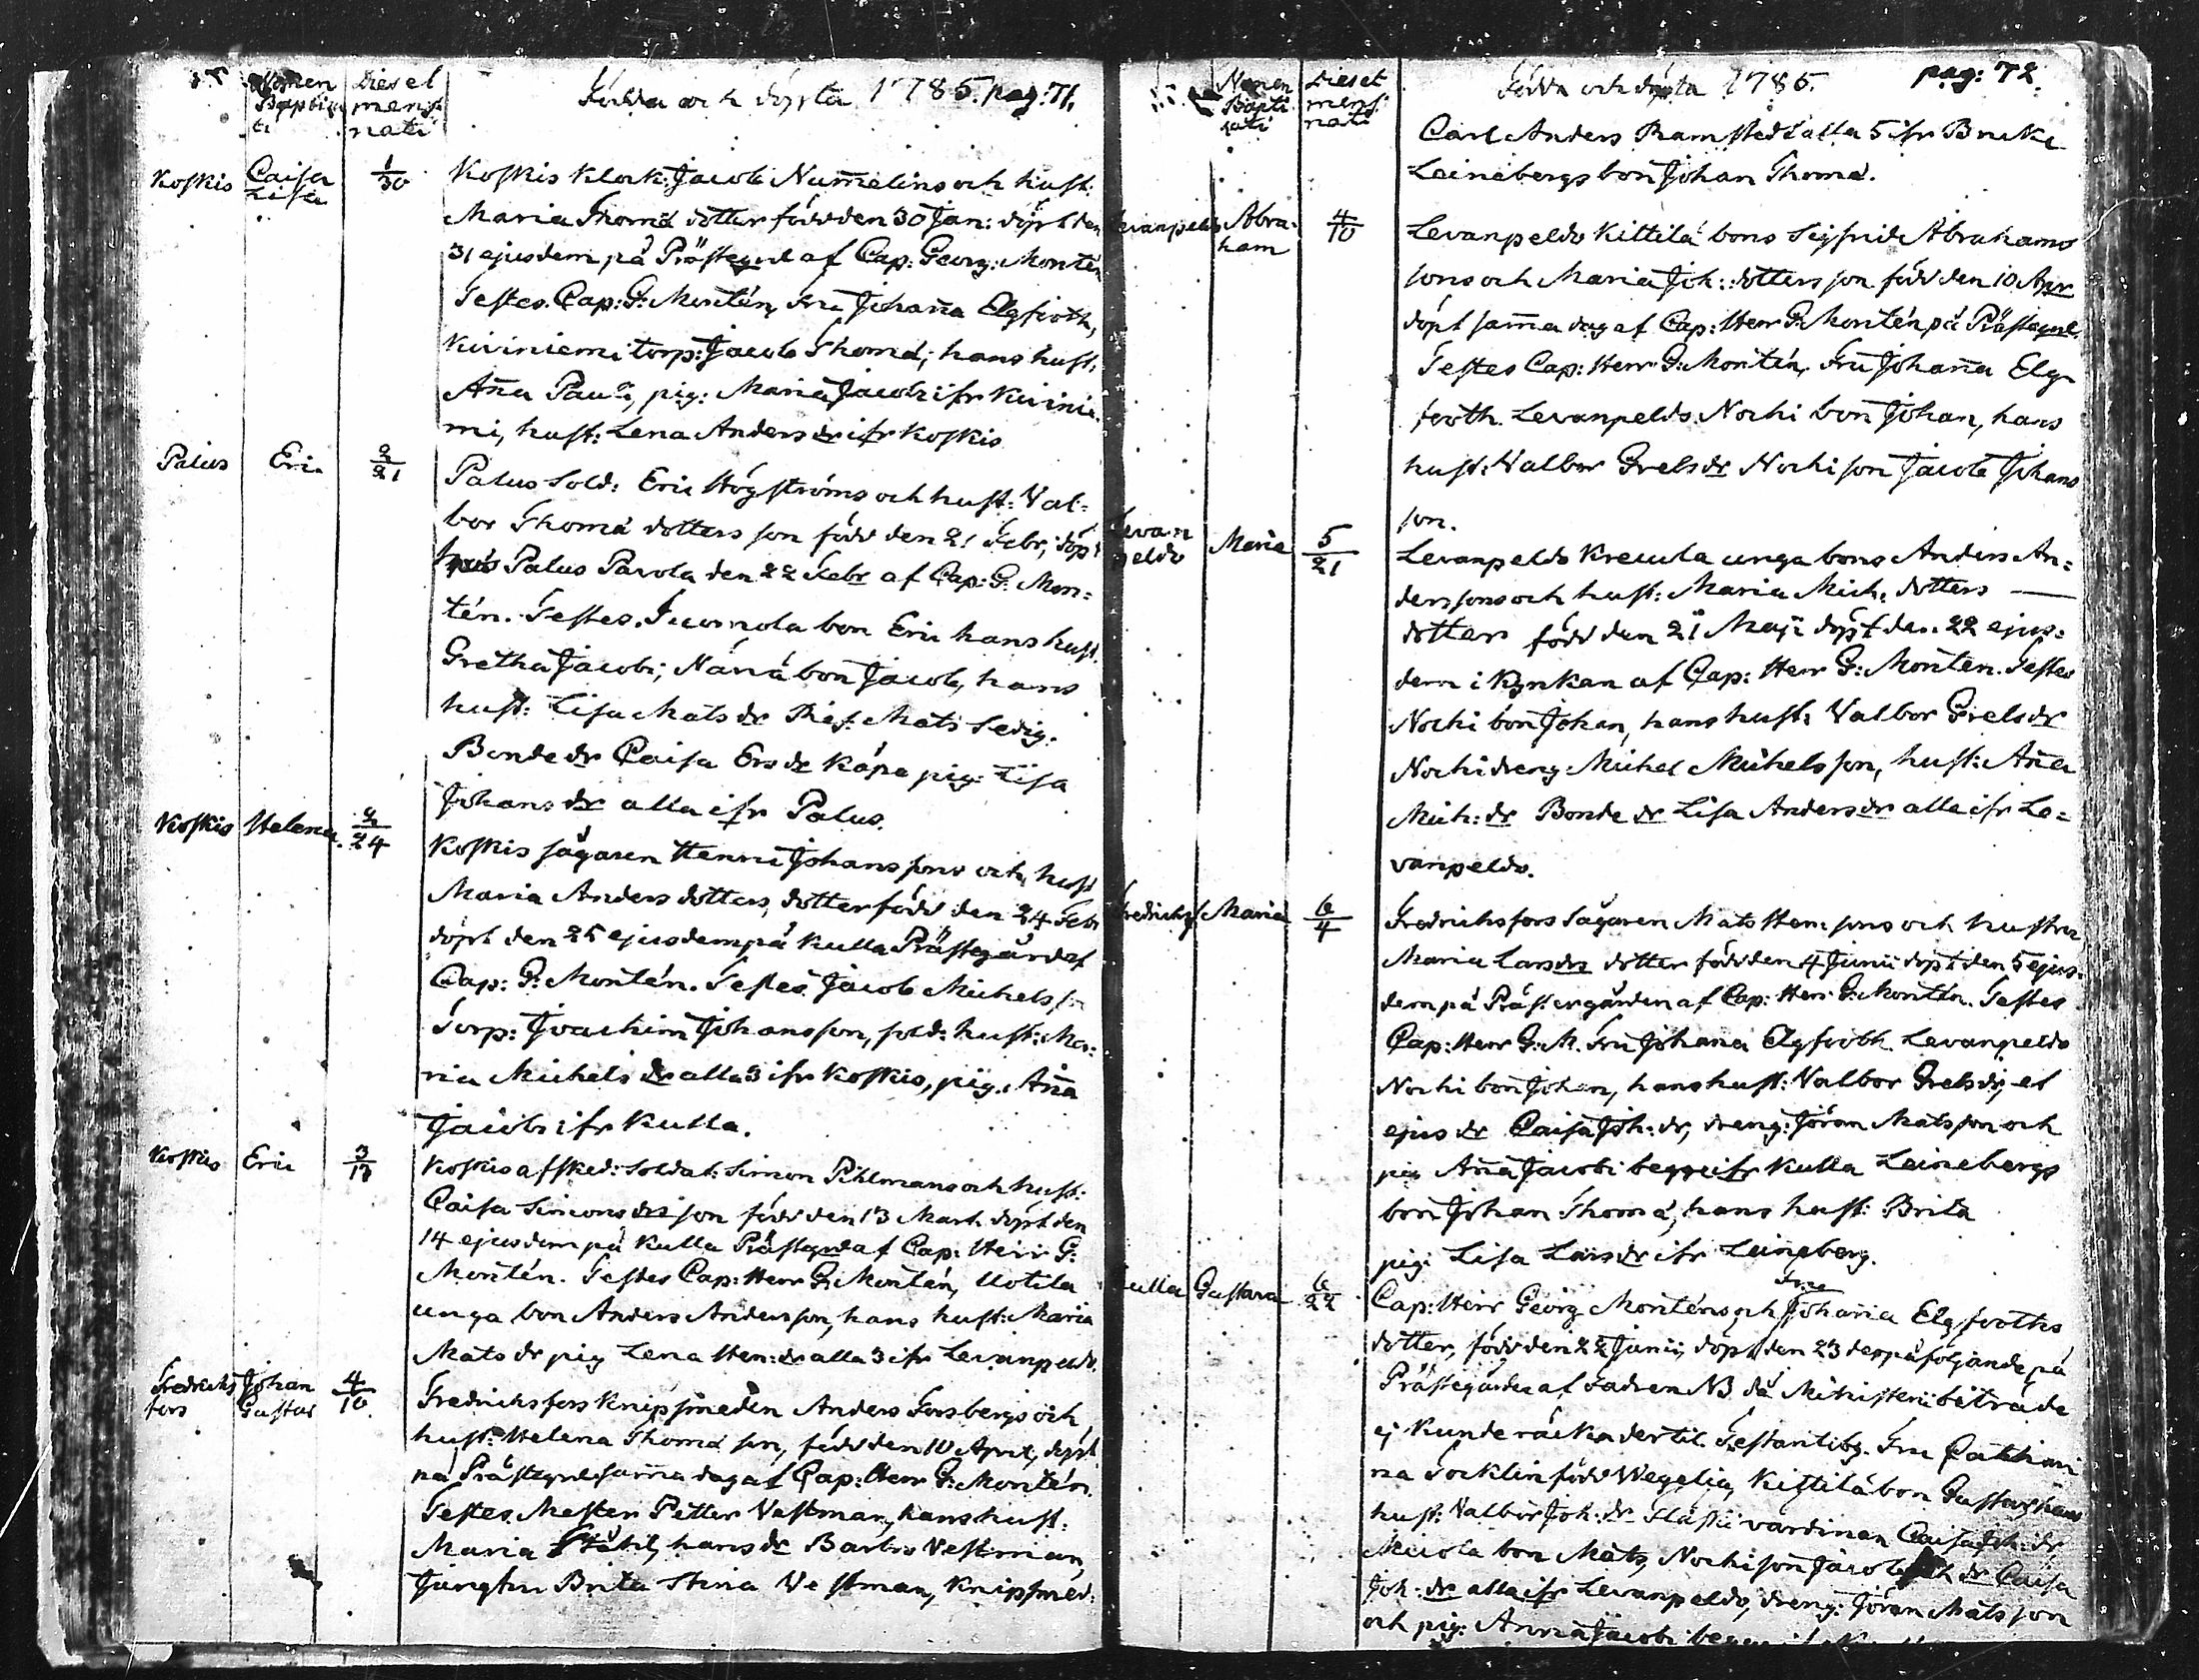 Nomen Baptizati
Dies et mens: nati
Födda och döpta 1785. pag: 71.
Koskis
Caisa Lisa
1/30
Koskis klock: Jacob Num̃elins och hust:
Maria Thomæ dotter född den 30 Jan: döpt den
31 ejusdem på Prästegrd af Cap: Georg: Montén
Testes. Cap: G: Montén, Fru Johan̄a Elgfooth,
Kiviniemi torp: Jacob Thomæ; hans hust,
An̄a Pauli, pig: Maria Jacobi ifr Kivinie
mi, hust: Lena Anders dr ifr Koskis
Palus
Eric
2/21
Palus Sold: Eric Högströms och hust: Val-
bor Thomæ dotters son född den 21 Febr; döpt
Palus Pavola den 22 Febr af Cap: G: Mon=
tén. Testes. bon Eric hans hust.
Gretha Jacobi; bon Jacob, hans
hust: Lisa Mats dr Mats
Bonde dr Caisa Ers dr pig: Lisa
Johans dr alla ifr Palus.
Koskis
Helena.
2/24
Koskis sågaren Henric Johanssons och hust
Maria Anders dotters, dotter född den 24 Febr
döpt den 25 ejusdem på Kulla Prästegård af
Cap: G: Montén. Testes Jacob Michels son
Torp: Joachim Johansson, sold: hust: Ma:
ria Michels dr alla 3 ifr Koskis, pig. An̄a
Jacobi ifr Kulla.
Koskis
Eric
3/13
Koskis afsked: Soldat: Simon Pihlmans och hust:
Caisa Simons drs son född den 13 Mart. döpt den
14 ejusdem på Kulla Prästegrd af Cap: Herr G:
Montén. Testes Cap: Herr G: Montén, Uotila
unga bon Anders Andersson, hans hust: Maria
Mats dr pig Lena Hen: dr alla 3 ifr Levanpeldo.
Fredrichs fors
Johan Gustav
4/10
Fredrichsfors Knipsmeden Anders Forsbergs och
hust: Helena Thomæ son, född den 10 April, döpt
på Prästegrd sam̄a dag af Cap: Herr G: Montén.
Testes. Mester Petter Vestman, hans hust:
Maria Ståhl, hans dr Barbro Vestman,
Jungfru Brita Stina Vestman, Knipsmed:
Nomen Baptizati
Dies et mens: nati
Födda och döpta 1785. pag: 72.
Carl Anders Ramsted alla 5 ifr Bruket
Leinebergs bon Johan Thomæ.
Levanpeldo
Abra-ham
4/10
Levanpeldo Kittilä bons Sigfrid Abrahams
sons och Maria Joh: dotters son född den 10 Apr
döpt sam̄a dag af Cap: Herr G: Montén på Prästegrd.
Testes Cap: Herr G: Montén, Fru Johan̄a Elg
footh. Levanpeldo Nochi bon Johan, hans
hust: Valbor Grels dr Nochi son Jacob Johans
son.
Levan peldo
Maria
5/21
Levanpeldo unga bons Anders An=
derssons och hust: Maria Mich: dotters —
dotter född den 21 Maji döpt den 22 ejus:
dem i Kyrkan af Cap: Herr G: Montén. Testes
Nochi bon Johan, hans hust: Valbor Grels dr
Nochi dreng: Michel Michelsson, hust: An̄a
Mich: dr Bonde dr Lisa Anders dr alla ifr Le=
vanpeldo.
Fredrichsf
Maria
6/4
Fredrichsfors Sågaren Mats Hen: sons och hustru
Maria Lars drs dotter född den 4 Junii döpt den 5 ejus-
dem på Prästergården af Cap: Herr G: Montén. Testes
Cap: Herr G: M. Fru Johan̄a Elgfooth. Levanpeldo
Nochi bon Johan, hans hust: Valbor Grels dr, et
ejus dr Caisa Joh: dr, dreng: Jöran Matsson och
pig An̄a Jacobi begge ifr Kulla Leinebergs
bon Johan Thomæ, hans hust: Brita
pig: Lisa Lars dr ifr Leineberg.
Kulla
Gustava
6/22
Cap: Herr Georg Monténs och Fru Johan̄a Elgfooths
dotter, född den 22 Junii, döpt den 23 derpåföljande på
Prästegården af Fadren NB. då Ministerii biträde
ej kunde räcka dertil. Testantibg. Fru Cathari
na Tocklin född Wegelia, Kittilä bon Gustav, hans
hust: Valbor Joh: dr värdinan Caisa Joh: dr
bon Mats, Nochi son Jacob och dr Caisa
Joh: dr alla ifr Levanpeldo, dreng: Jöran Matsson
och pig: Anna Jacobi begge ifr